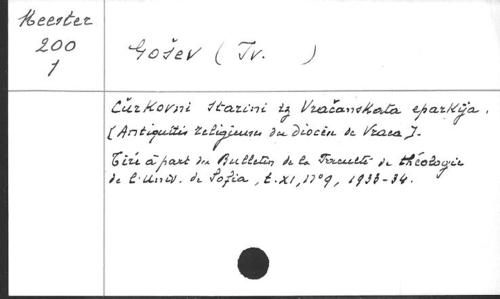 Meester
200
1
Gošev (Iv. )
Cŭrkovni starini iz Vračanskata eparkija.
[Antiquités religieuses du diocèse de Vraca].
Tiré à part du Bulletin de la Faculté de théologie
de l'Univ. de Sofia, t. XI, n° 9, 1933-34.